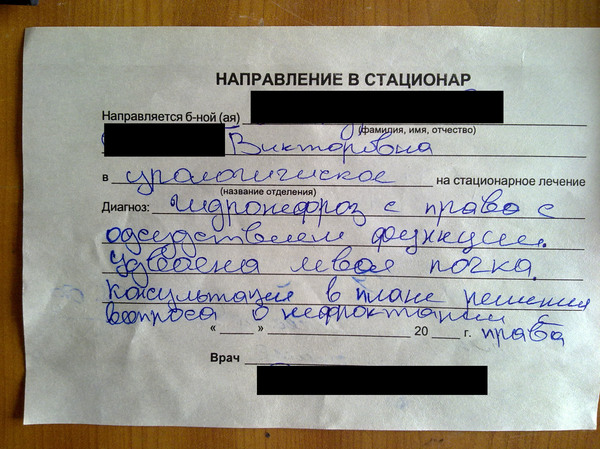 НАПРАВЛЕНИЕ В СТАЦИОНАР
Направляется б-ной (ая)
(фамилия, имя, отчество)
Викторовна
в урологическое на стационарное лечение
(название отделения)
Диагноз: Гидронефроз с права с
одсудствием функции.
Удвоена левая почка.
Консультация в плане решения
вопроса о нефроктамии с
« » 20 г. права
Врач